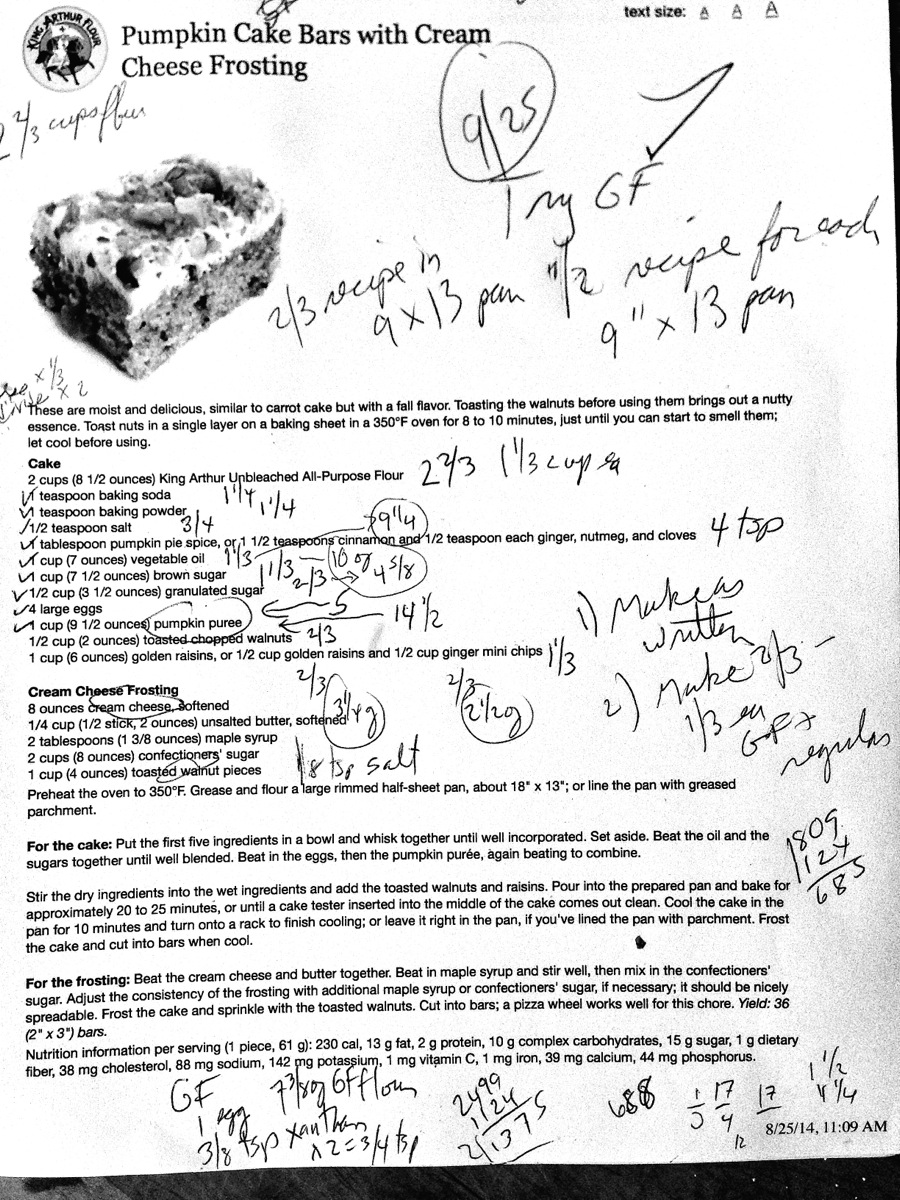 text size: A A A
KING ARTHUR FLOUR
Pumpkin Cake Bars with Cream
Cheese Frosting
2 2/3 cups flour
9/25
Try GF
2/3 recipe in
9 x 13 pan
1/2 recipe for each
9" x 13 pan
x 1/3
x 2
These are moist and delicious, similar to carrot cake but with a fall flavor. Toasting the walnuts before using them brings out a nutty
essence. Toast nuts in a single layer on a baking sheet in a 350°F oven for 8 to 10 minutes, just until you can start to smell them;
let cool before using.
Cake
2 cups (8 1/2 ounces) King Arthur Unbleached All-Purpose Flour 2 2/3 1 1/3 cup ea
1 teaspoon baking soda 1 1/4
1 teaspoon baking powder 1 1/4
1/2 teaspoon salt 3/4 9 1/4
1 tablespoon pumpkin pie spice, or 1 1/2 teaspoons cinnamon and 1/2 teaspoon each ginger, nutmeg, and cloves 4 tsp
1 cup (7 ounces) vegetable oil 1 1/3
1 cup (7 1/2 ounces) brown sugar 1 1/3 10 oz
1/2 cup (3 1/2 ounces) granulated sugar 2/3 4 5/8
4 large eggs 5
1 cup (9 1/2 ounces) pumpkin puree 14 1/2
1/2 cup (2 ounces) toasted chopped walnuts 2/3
1 cup (6 ounces) golden raisins, or 1/2 cup golden raisins and 1/2 cup ginger mini chips 1 1/3
1) Make as
written
2) Make 2/3 -
1/3 ea
GF +
regular
Cream Cheese Frosting 2/3 2/3
8 ounces cream cheese, softened
1/4 cup (1/2 stick, 2 ounces) unsalted butter, softened
2 tablespoons (1 3/8 ounces) maple syrup
2 cups (8 ounces) confectioners' sugar
1 cup (4 ounces) toasted walnut pieces
1/8 tsp salt
Preheat the oven to 350°F. Grease and flour a large rimmed half-sheet pan, about 18" x 13"; or line the pan with greased
parchment.
For the cake: Put the first five ingredients in a bowl and whisk together until well incorporated. Set aside. Beat the oil and the
sugars together until well blended. Beat in the eggs, then the pumpkin purée, again beating to combine.
1809
1124
685
Stir the dry ingredients into the wet ingredients and add the toasted walnuts and raisins. Pour into the prepared pan and bake for
approximately 20 to 25 minutes, or until a cake tester inserted into the middle of the cake comes out clean. Cool the cake in the
pan for 10 minutes and turn onto a rack to finish cooling; or leave it right in the pan, if you've lined the pan with parchment. Frost
the cake and cut into bars when cool.
For the frosting: Beat the cream cheese and butter together. Beat in maple syrup and stir well, then mix in the confectioners'
sugar. Adjust the consistency of the frosting with additional maple syrup or confectioners' sugar, if necessary; it should be nicely
spreadable. Frost the cake and sprinkle with the toasted walnuts. Cut into bars; a pizza wheel works well for this chore. Yield: 36
(2" x 3") bars.
Nutrition information per serving (1 piece, 61 g): 230 cal, 13 g fat, 2 g protein, 10 g complex carbohydrates, 15 g sugar, 1 g dietary
fiber, 38 mg cholesterol, 88 mg sodium, 142 mg potassium, 1 mg vitamin C, 1 mg iron, 39 mg calcium, 44 mg phosphorus.
GF 7 3/8 oz GF flour
1 egg
3/8 tsp xanthan
x 2 = 3/4 tsp
2499
1124
2 1375
688
1/3 17/4 17/12
1 1/2
1 1/4
8/25/14, 11:09 AM